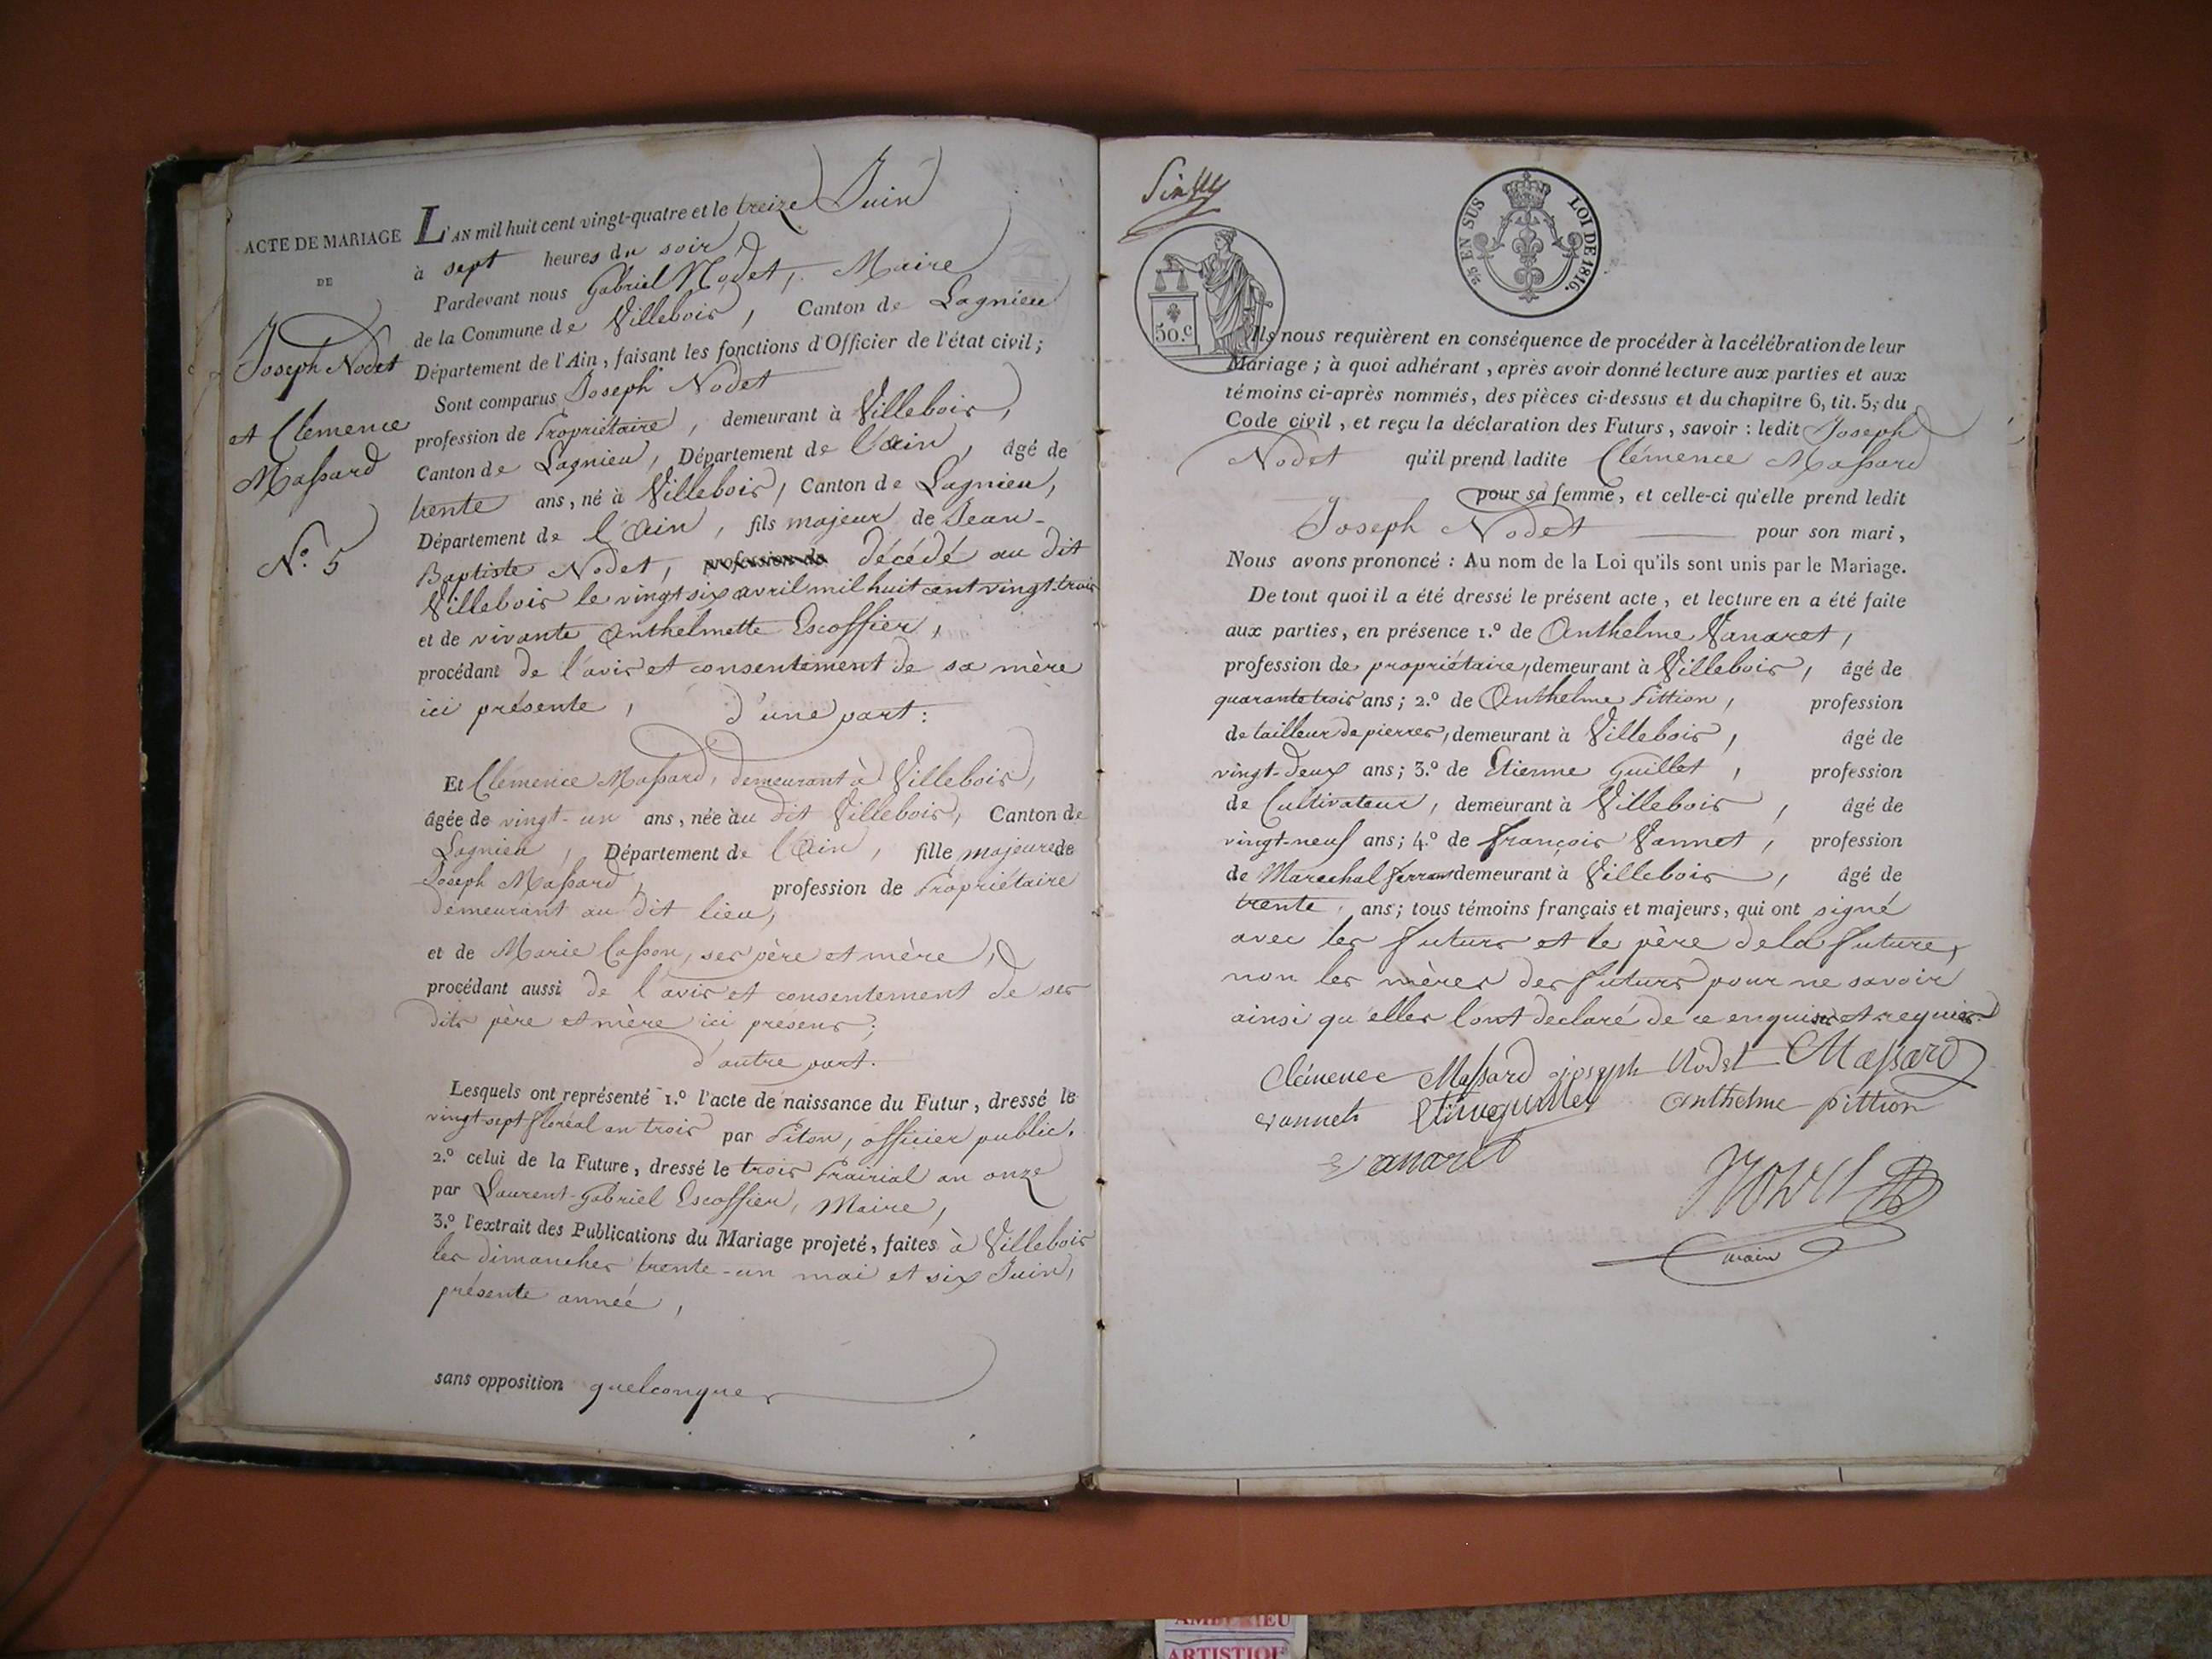 ACTE DE MARIAGE
DE
Joseph Nodet
et Clemence
Massard
N.° 5
L'AN mil huit cent vingt-quatre et le treize Juin
à sept heures du soir,
Pardevant nous Gabriel Nodet, Maire
de la Commune de Villebois, Canton de Lagnieu
Département de l'Ain, faisant les fonctions d'Officier de l'état civil;
Sont comparus Joseph Nodet
profession de Propriétaire, demeurant à Villebois,
Canton de Lagnieu, Département de l'ain, âgé de
trente ans, né à Villebois, Canton de Lagnieu,
Département de l'Ain, fils majeur de Jean-
Baptiste Nodet, profession de décédé au dit
Villebois le vingt six avril mil huit cent vingt-trois
et de vivante Anthelmette Escoffier,
procédant de l'avis et consentement de sa mère
ici présente, d'une part:
Et Clémence Massard, demeurant à Villebois,
âgée de vingt-un ans, née au dit Villebois, Canton de
Lagnieu, Département de l'Ain, fille majeure de
Joseph Massard, profession de Propriétaire
demeurant au dit lieu,
et de Marie Casson, ses père et mère,
procédant aussi de l'avis et consentement de ses
dits père et mère ici présens;
d'autre part.
Lesquels ont représenté 1.° l'acte de naissance du Futur, dressé le
vingt-sept floréal an trois par Piton, officier public.
2.° celui de la Future, dressé le trois Prairial an onze
par Laurent-Gabriel Escoffier, Maire,
3.° l'extrait des Publications du Mariage projeté, faites à Villebois
les dimanches trente-un mai et six Juin,
présente année,
sans opposition quelconque
5/10 EN SUS LOI DE 1816.
50.c
Ils nous requièrent en conséquence de procéder à la célébration de leur
Mariage; à quoi adhérant, après avoir donné lecture aux parties et aux
témoins ci-après nommés, des pièces ci-dessus et du chapitre 6, tit. 5, du
Code civil, et reçu la déclaration des Futurs, savoir: ledit Joseph
Nodet qu'il prend ladite Clémence Massard
pour sa femme, et celle-ci qu'elle prend ledit
Joseph Nodet pour son mari,
Nous avons prononcé: Au nom de la Loi qu'ils sont unis par le Mariage.
De tout quoi il a été dressé le présent acte, et lecture en a été faite
aux parties, en présence 1.° de Anthelme Vanaret,
profession de propriétaire, demeurant à Villebois, âgé de
quarante trois ans; 2.° de Anthelme Pittion, profession
de tailleur de pierres, demeurant à Villebois, âgé de
vingt-deux ans; 3.° de Etienne Guillet, profession
de Cultivateur, demeurant à Villebois, âgé de
vingt-neuf ans; 4.° de françois Vannet, profession
de Marechal ferrant demeurant à Villebois, âgé de
trente ans; tous témoins français et majeurs, qui ont signé
avec les futurs et le père de la future,
non les mères des futurs pour ne savoir
ainsi qu'elles l'ont declaré de ce enquises et requises
Clémence Massard joseph Nodet Massard
vannet etienne guillet anthelme pittion
vanaret
Nodet
maire
ARTISTIQ